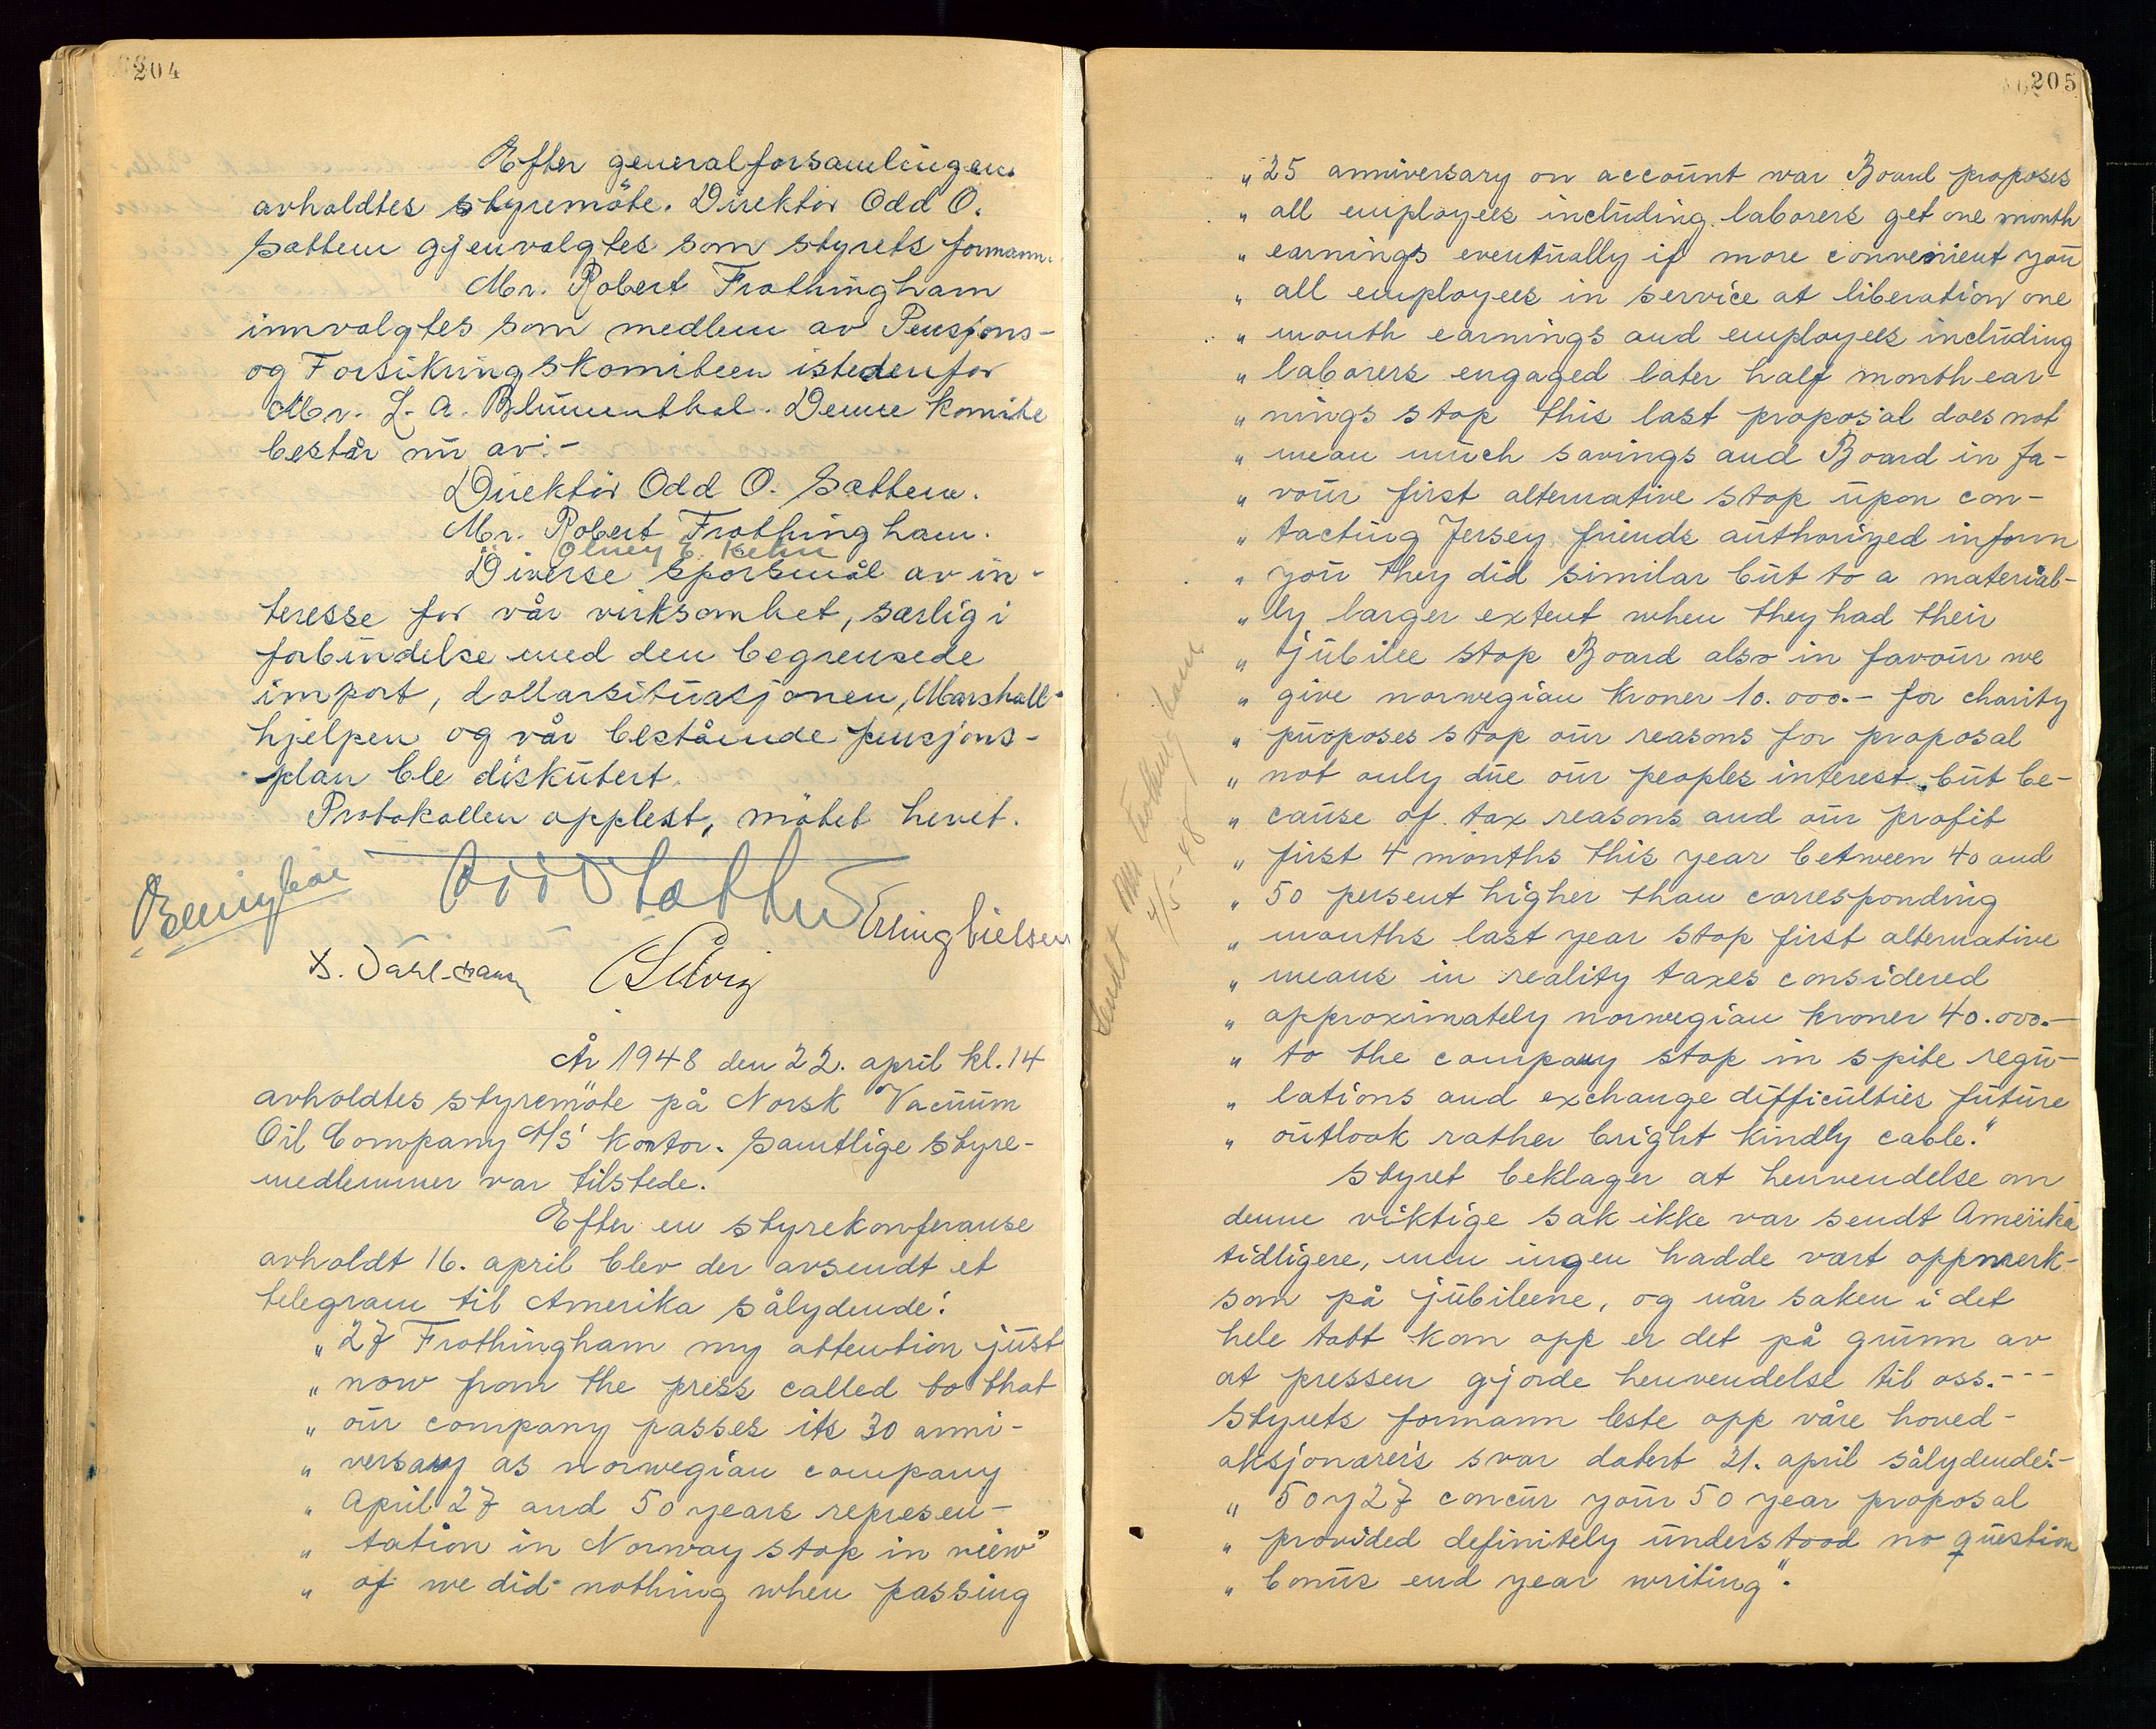 204
Efter generalforsamlingen
avholdtes styremöte. Direktör Odd O.
Sættem gjenvalgtes som styrets formann.
Mr. Robert Frothingham
innvalgtes som medlem av Pensjons-
og Forsikringskomiteen istedenfor
Mr. L. A. Blumenthal. Denne komite
består nu av:-
Direktör Odd O. Sættem.
Mr. Robert Frothingham.
Olney E. Kehn
Diverse sporsmål av in-
teresse for vår virksomhet, særlig i
forbindelse med den begrensede
import, dollarsituasjonen, Marshall-
hjelpen og vår bestående pensjons-
plan ble diskutert.
Protokollen opplest, mötet hevet.
Odd O Sættem
Erling Nielsen
År 1948 den 22. april kl. 14
avholdtes styremöte på Norsk Vacuum
Oil Company A/S' kontor. Samtlige styre-
medlemmer var tilstede.
Efter en styrekonferanse
avholdt 16. april blev der avsendt et
telegram til Amerika sålydende:
„ 27 Frothingham my attention just
„ now from the press called to that
„ our company passes its 30 anni-
„ versary as norwegian company
„ April 27 and 50 years represen-
„ tation in Norway stop in view
„ of we did nothing when passing
205
„ 25 anniversary on account war Board proposes
„ all employees including laborers get one month
„ earnings eventually if more convenient you
„ all employees in service at liberation one
„ month earnings and employees including
„ laborers engaged later half month ear-
„ nings stop this last proposal does not
„ mean much savings and Board in fa-
„ vour first alternative stop upon con-
„ tacting Jersey friends authorized inform
„ you they did similar but to a material-
„ ly larger extent when they had their
„ jubilee stop Board also in favour we
„ give norwegian kroner 10.000.- for charity
„ purposes stop our reasons for proposal
„ not only due our peoples interest but be-
„ cause of tax reasons and our profit
„ first 4 months this year between 40 and
„ 50 persent higher than corresponding
„ months last year stop first alternative
„ means in reality taxes considered
„ approximately norwegian kroner 40.000.-
„ to the company stop in spite regu-
„ lations and exchange difficulties future
„ outlook rather bright kindly cable."
Styret beklager at henvendelse om
denne viktige sak ikke var sendt Amerika
tidligere, men ingen hadde vært oppmerk-
som på jubileene, og når saken i det
hele tatt kom opp er det på grunn av
at pressen gjorde henvendelse til oss.---
Styrets formann leste opp våre hoved-
aksjonærers svar datert 21. april sålydende:-
„ 50 y 27 concur your 50 year proposal
„ provided definitely understood no question
„ bonus end year writing".
Sendt Mr Frothingham
4/5-48